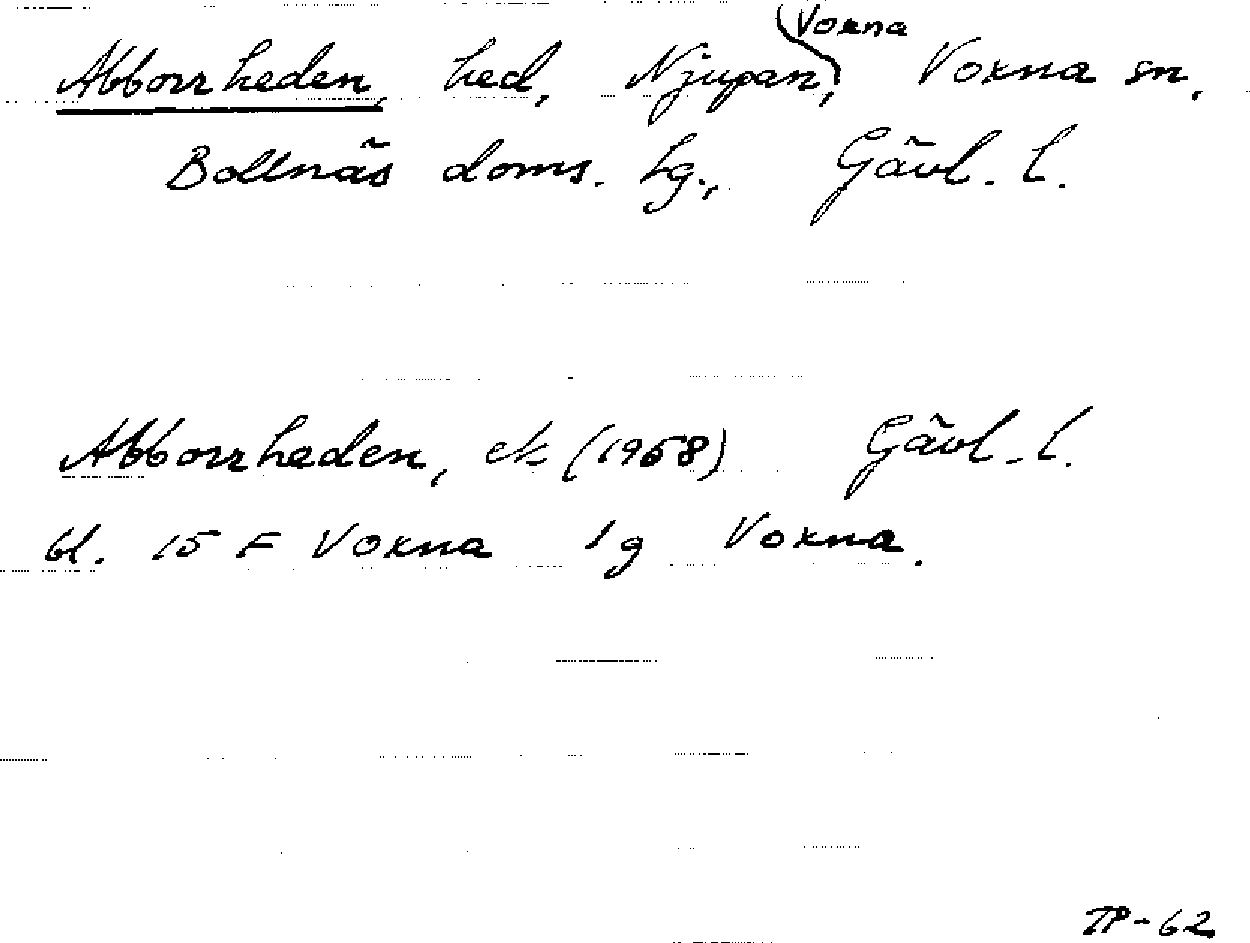 Voxna
Abborrheden, hed, Njupan, Voxna sn,
Bollnäs doms. lg., Gävl. l.
Abborrheden, ek (1958) Gävl. l.
bl. 15 F Voxna 1g Voxna.
TP-62